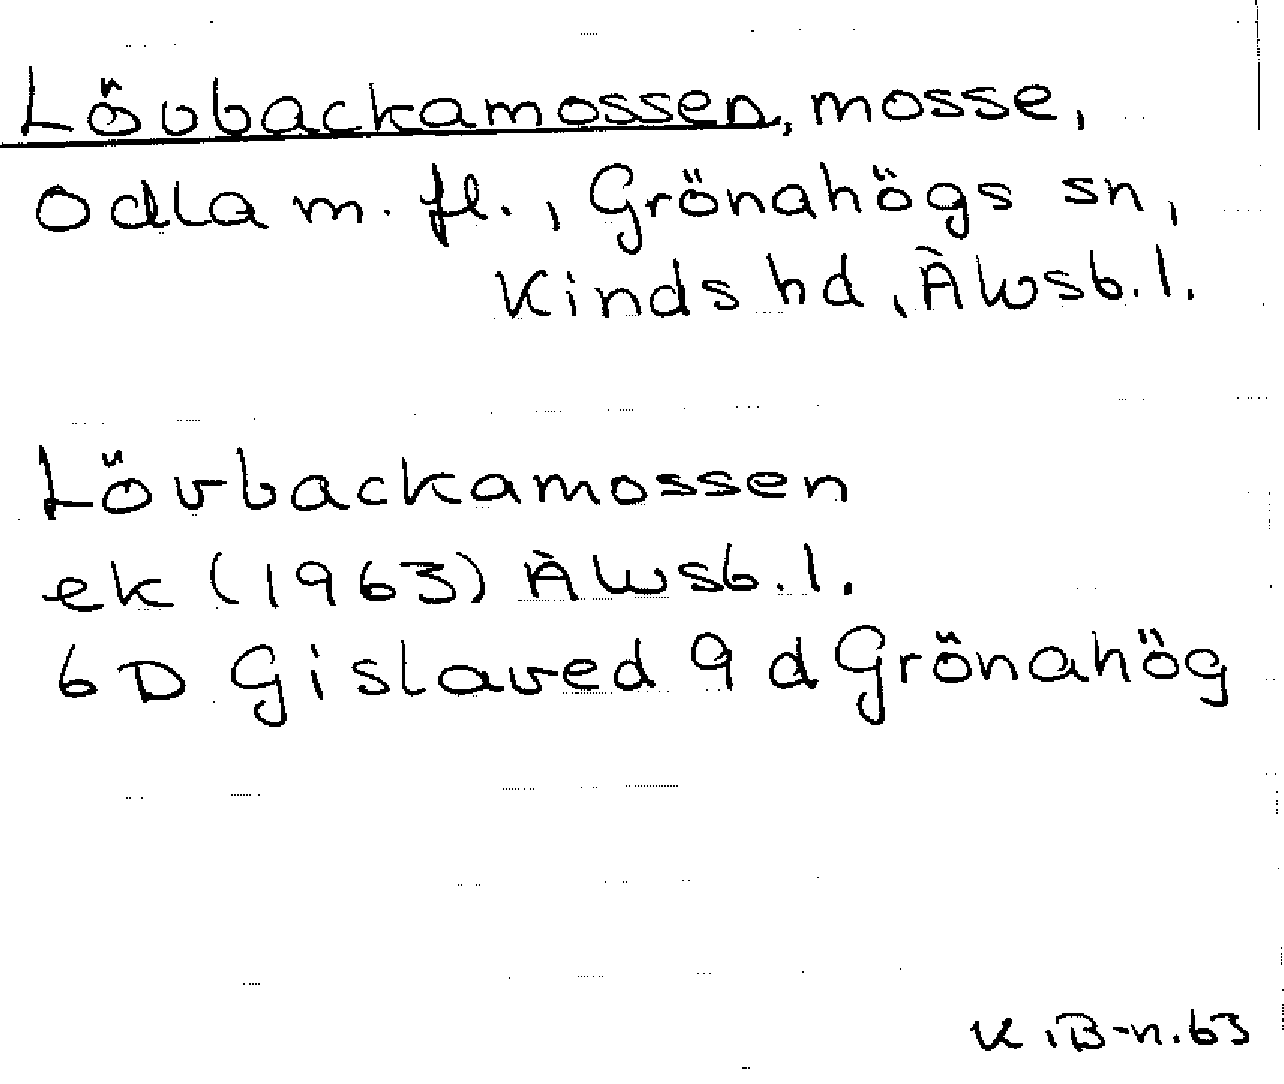 Lövbackamossen, mosse,
Odla m. fl., Grönahögs sn,
Kinds hd, Älvsb. l.
Lövbackamossen
ek (1963) Älvsb. l.
6D Gislaved 9d Grönahög
K. B-n. 63